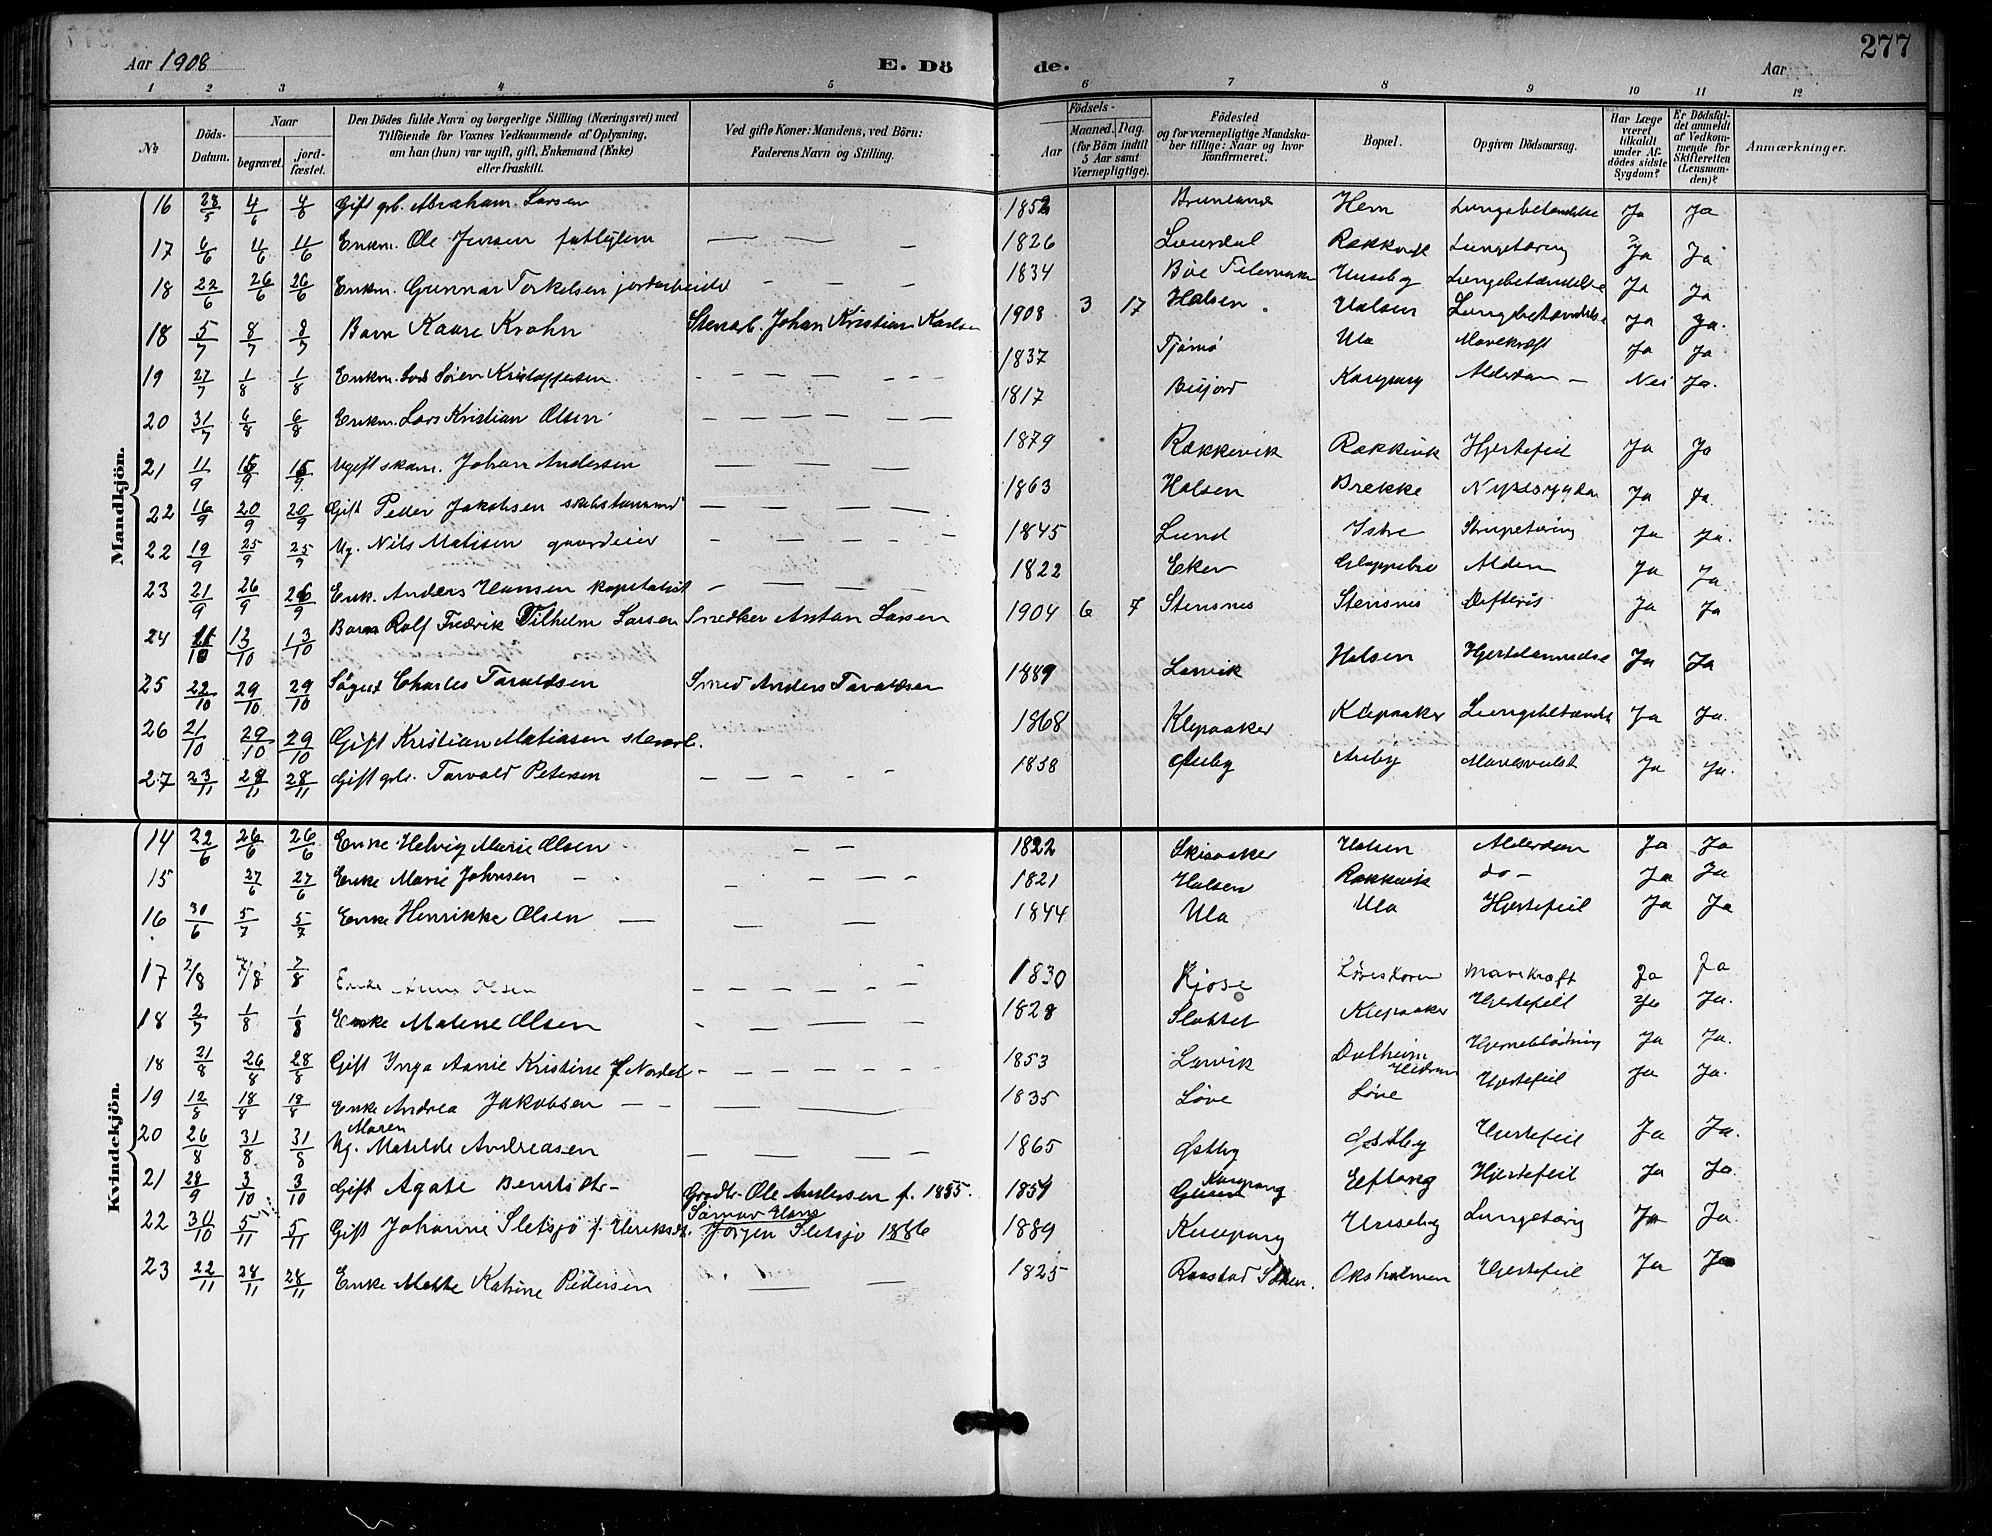 277
Aar 1908
E. Dö
de.
Aar
1 2 3 4 5 6 7 8 9 10 11 12
No
Döds-Datum.
Naar
begravet.
jord-fæstet.
Den Dödes fulde Navn og borgerlige Stilling (Næringsvei) med
Tilföiende for Voxnes Vedkommende af Oplysning,
om han (hun) var ugift, gift, Enkemand (Enke)
eller fraskilt.
Ved gifte Koner: Mandens, ved Börn:
Faderens Navn og Stilling.
Födsels-
Aar
Maaned. Dag.
(for Börn indtil
5 Aar samt
Værnepligtige).
Födested
og for værnepligtige Mandska-
ber tillige: Naar og hvor
konfirmeret.
Bopæl.
Opgiven Dödsaarsag.
Har Læge
været
tilkaldt
under Af-
dödes sidste
Sygdom?
Er Dödsfal-
det anmeldt
af Vedkom-
mende for
Skifteretten
(Lensman-
den)?
Anmærkninger.
Mandkjön.
16 28/5 4/6 4/6 Gift grb. Abraham Larsen 1852 Brunlanæs Hem Lungebetændelse Ja Ja
17 6/6 11/6 11/6 Enkm. Ole Jensen fattiglem 1826 Rækkevik Lungetæring Ja Ja
18 22/6 26/6 26/6 Enkm. Gunnar Torkelsen jordarbeider 1834 Böe Telemarken Huseby Lungebetændelse Ja Ja
18 5/7 8/7 8/7 Barn Kaare Krohn Stenarb. Johan Kristian Karlsen 1908 3 17 Halsen Halsen Lungebetændelse Ja Ja.
19 27/7 1/8 1/8 Enkm. Sören Kristoffersen 1837 Tjömö Ula Mavekræft Ja Ja
20 31/7 6/8 6/8 Enkm. Lars Kristian Olsen 1817 Kaupang Alderdom Nei Ja.
21 11/9 15/9 15/9 Ugift skom. Johan Andersen 1879 Rækkevik Rækkevik Hjertefeil Ja Ja
22 16/9 20/9 20/9 Gift Peder Jakobsen skibstømmermd 1863 Halsen Brekke Nyresygdom Ja Ja.
22 19/9 25/9 25/9 Ug. Nils Matisen gaardeier 1845 Lund Istre Strupetæring Ja Ja.
23 21/9 26/9 26/9 Enk. Anders Hansen kapitalist 1822 Eker Gloppebro Alderdom Ja Ja.
24 11/10 13/10 13/10 Barn Rolf Fredrik Vilhelm Larsen Snedker Anton Larsen 1904 6 7 Stensnes Stensnes Difteris Ja Ja
25 22/10 29/10 29/10 Sögut Charles Taraldsen Smed Anders Taraldsen 1889 Larvik Halsen Hjertelammelse Ja Ja
26 21/10 29/10 29/10 Gift Kristian Matiasen stenarb. 1868 Klepaaker Klepaaker Lungebetændelse Ja Ja.
27 23/11 28/11 28/11 Gift grb. Torvald Petersen 1858 Auby Auby Mavesvulst Ja Ja.
Kvindekjön.
14 22/6 26/6 26/6 Enke Helvig Marie Olsen 1822 Skisaaker Halsen Alderdom Ja Ja
15 27/6 27/6 Enke Marie Johnsen 1821 Halsen Rækkevik do - Ja Ja
16 30/6 5/7 5/7 Enke Henrikke Olsen 1844 Ula Ula Hjertefeil Ja Ja
17 2/8 7/8 7/8 Enke Anna Olsen 1830 Kjose Löveskoven Mavekræft Ja Ja
18 2/7 1/8 1/8 Enke Malene Olsen 1828 Slottet Klepaaker Hjertefeil Ja Ja.
18 21/8 26/8 28/8 Gift Inga Annie Kristine f. Nordal 1853 Larvik Dalheim Hedrum Hjerneblödning Ja Ja.
19 12/8 18/8 18/8 Enke Andrea Jakobsen 1835 Löve Löve Hjertefeil Ja Ja.
20 26/8 31/8 31/8 Ug. Maren Matilde Andreasen 1865 Østby Østby Hjertefeil Ja Ja.
21 28/9 3/10 3/10 Gift Agate Berntsdtr - Grdbr. Ole Andersen f. 1855. 1859 Kaupang Eftang Hjertefeil Ja Ja
22 30/10 5/11 5/11 Gift Johanne Sletsjö f. Henriksdt. Sömand Hans Jörgen Sletsjö 1886 1889 Kaupang Huseby Lungetæring Ja Ja.
23 22/11 28/11 28/11 Enke Mette Katrine Pedersen 1825 Raastad Oksholmen Hjertefeil Ja Ja